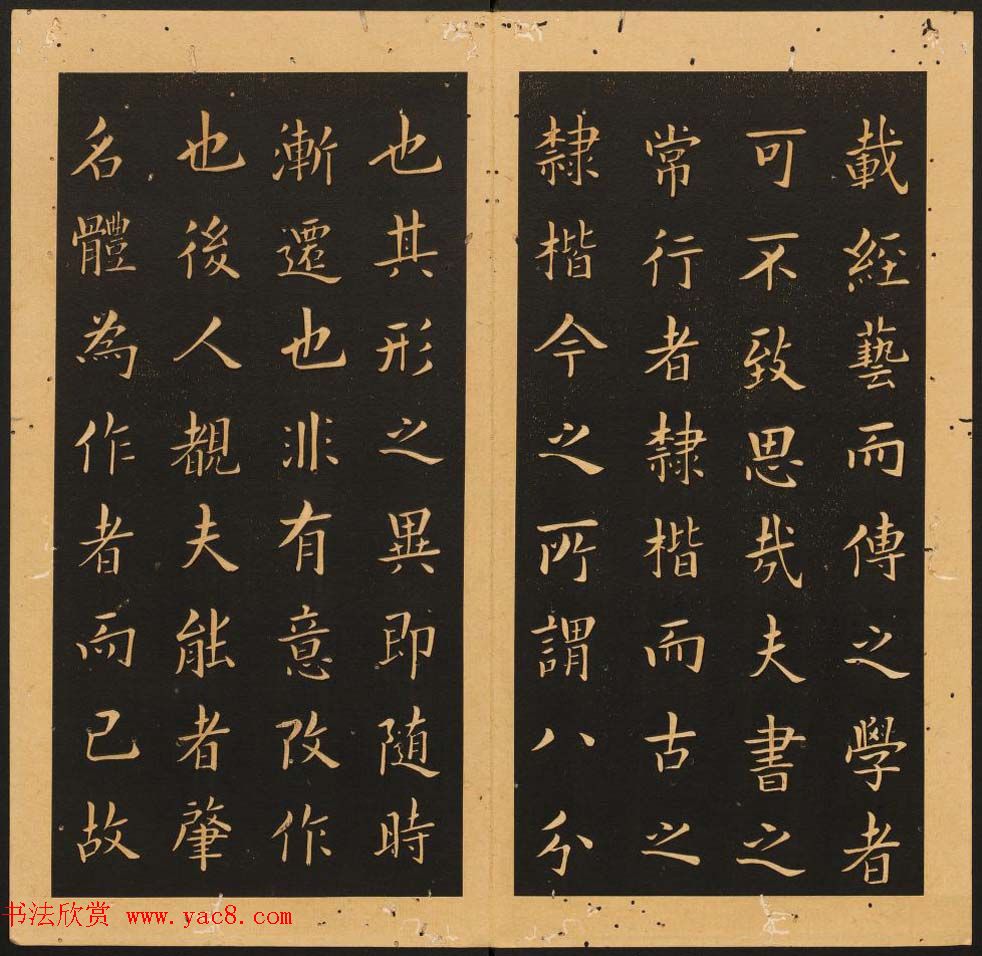 載經藝而傳之學者
可不致思哉夫書之
常行者隸楷而古之
隸楷今之所謂八分
也其形之異即随時
漸遷也非有意改作
也後人覩夫能者肇
名體為作者而已故
书法欣赏 www.yac8.com